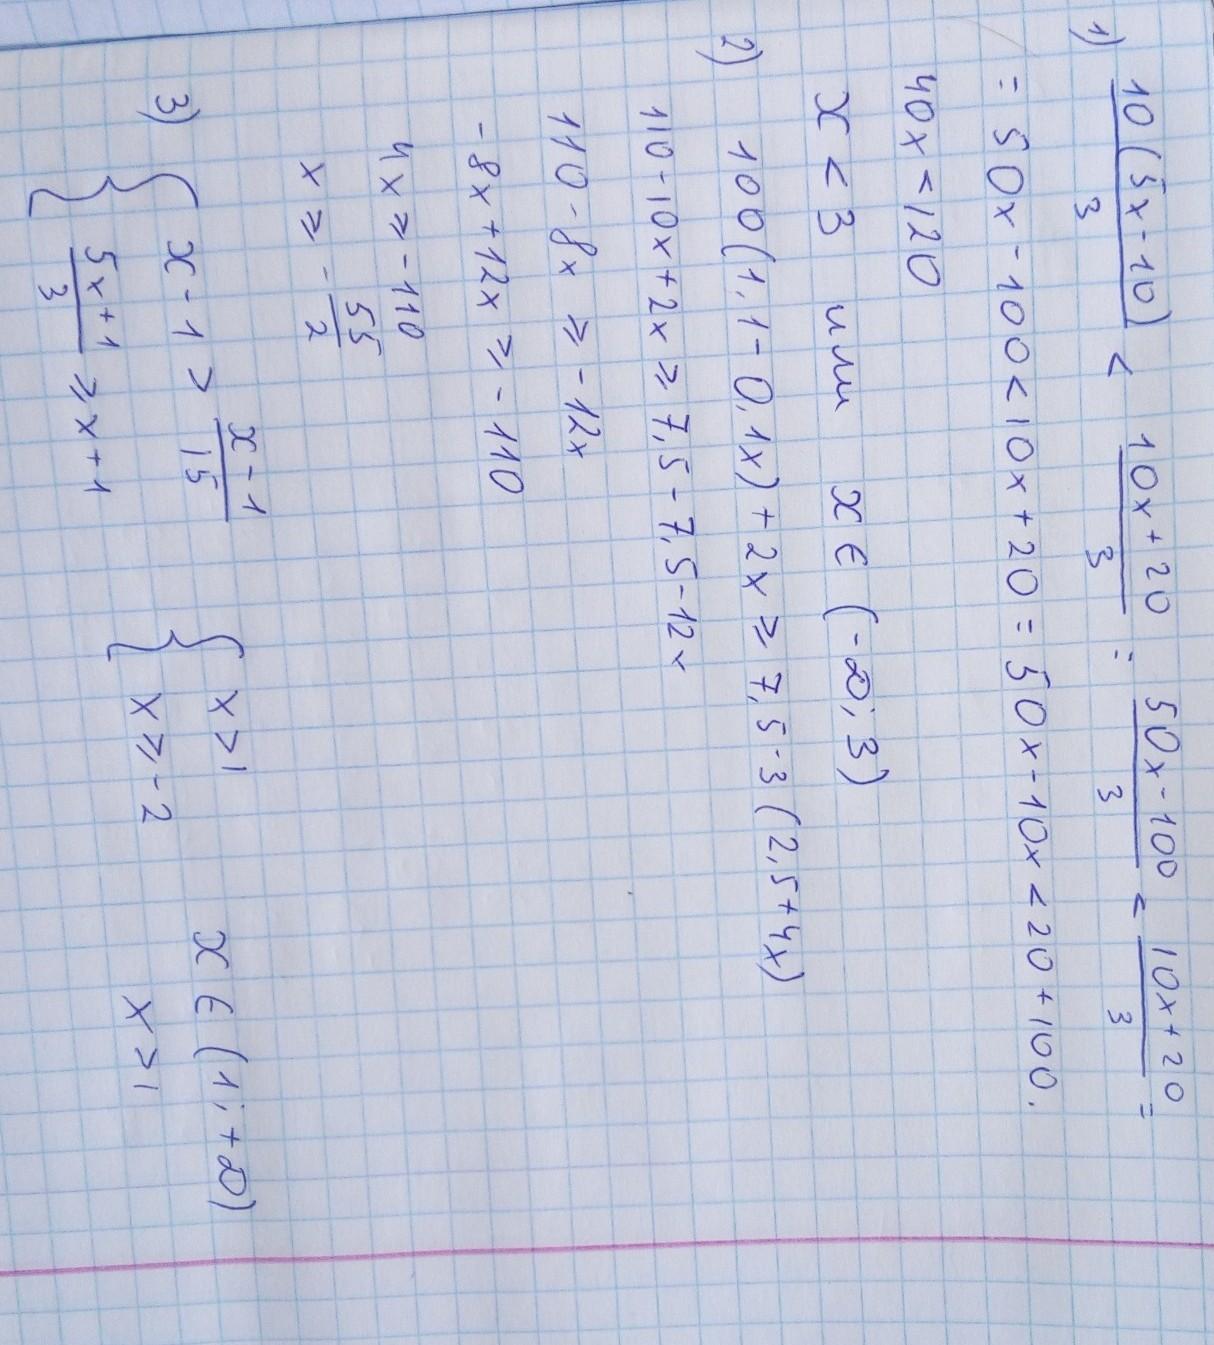 1) 10(5x-10)/3 < 10x+20/3 = 50x-100/3 < 10x+20/3 =
= 50x-100<10x+20 = 50x-10x<20+100.
40x<120
x<3 или x∈(-∞;3)
2) 100(1,1-0,1x)+2x⩾7,5-3(2,5+4x)
110-10x+2x⩾7,5-7,5-12x
110-8x⩾-12x
-8x+12x⩾-110
4x⩾-110
x⩾-55/2
3) { x-1>x-1/15 { x>1 x∈(1;+∞)
5x+1/3⩾x+1 x⩾-2 x>1